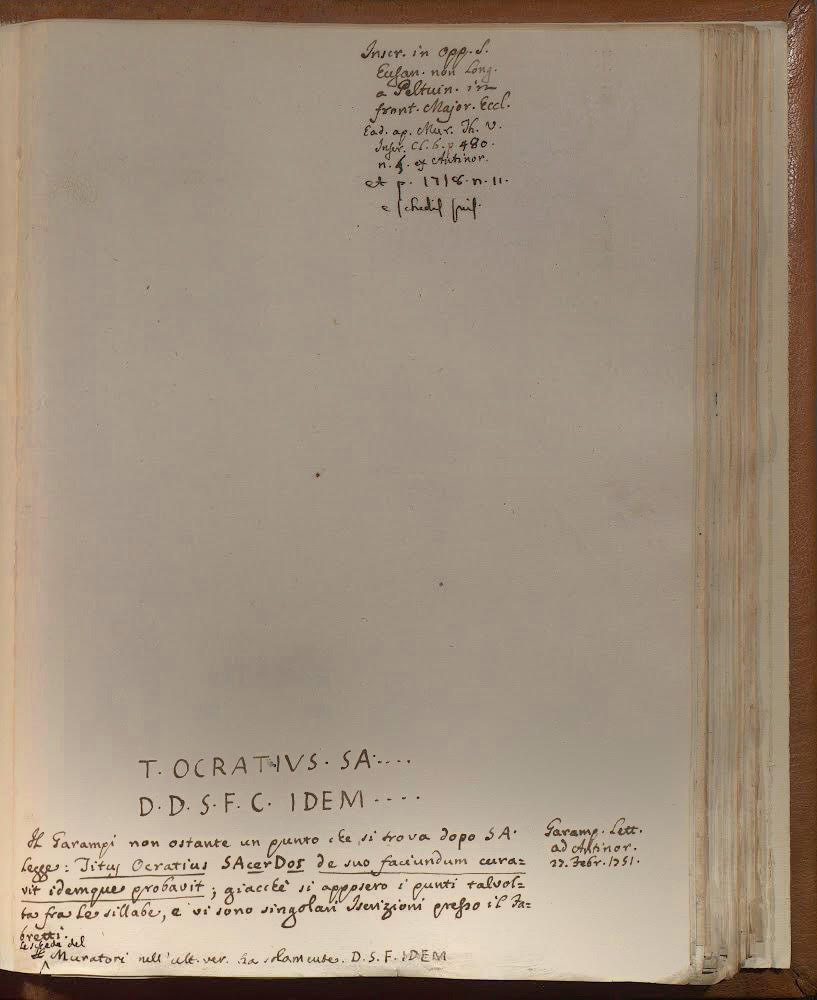 Inscr. in opp. S.
Eusan. non Long.
a Peltuin. in
front. Major. Eccl.
Ead. ap. Mur. Th. V.
Inscr. Cl. 6. p 480.
n. 5. ex Antinor.
et p. 1718. n. 11.
e schedis suis.
T. OCRATIVS. SA....
D. D. S. F. C. IDEM ....
Il Garampi non ostante un punto che si trova dopo SA.
legge: Titus Ocratius SAcerDos de suo faciundum cura=
vit idemque probavit; giacchè si apposero i punti talvol=
ta fra le sillabe, e vi sono singolari Iscrizioni presso il Fa=
bretti.
Garamp. Lett.
ad Antinor.
27. Febr. 1751.
le scheda del
Il Muratori nell'ult. ver. ha solamente. D. S. F. IDEM